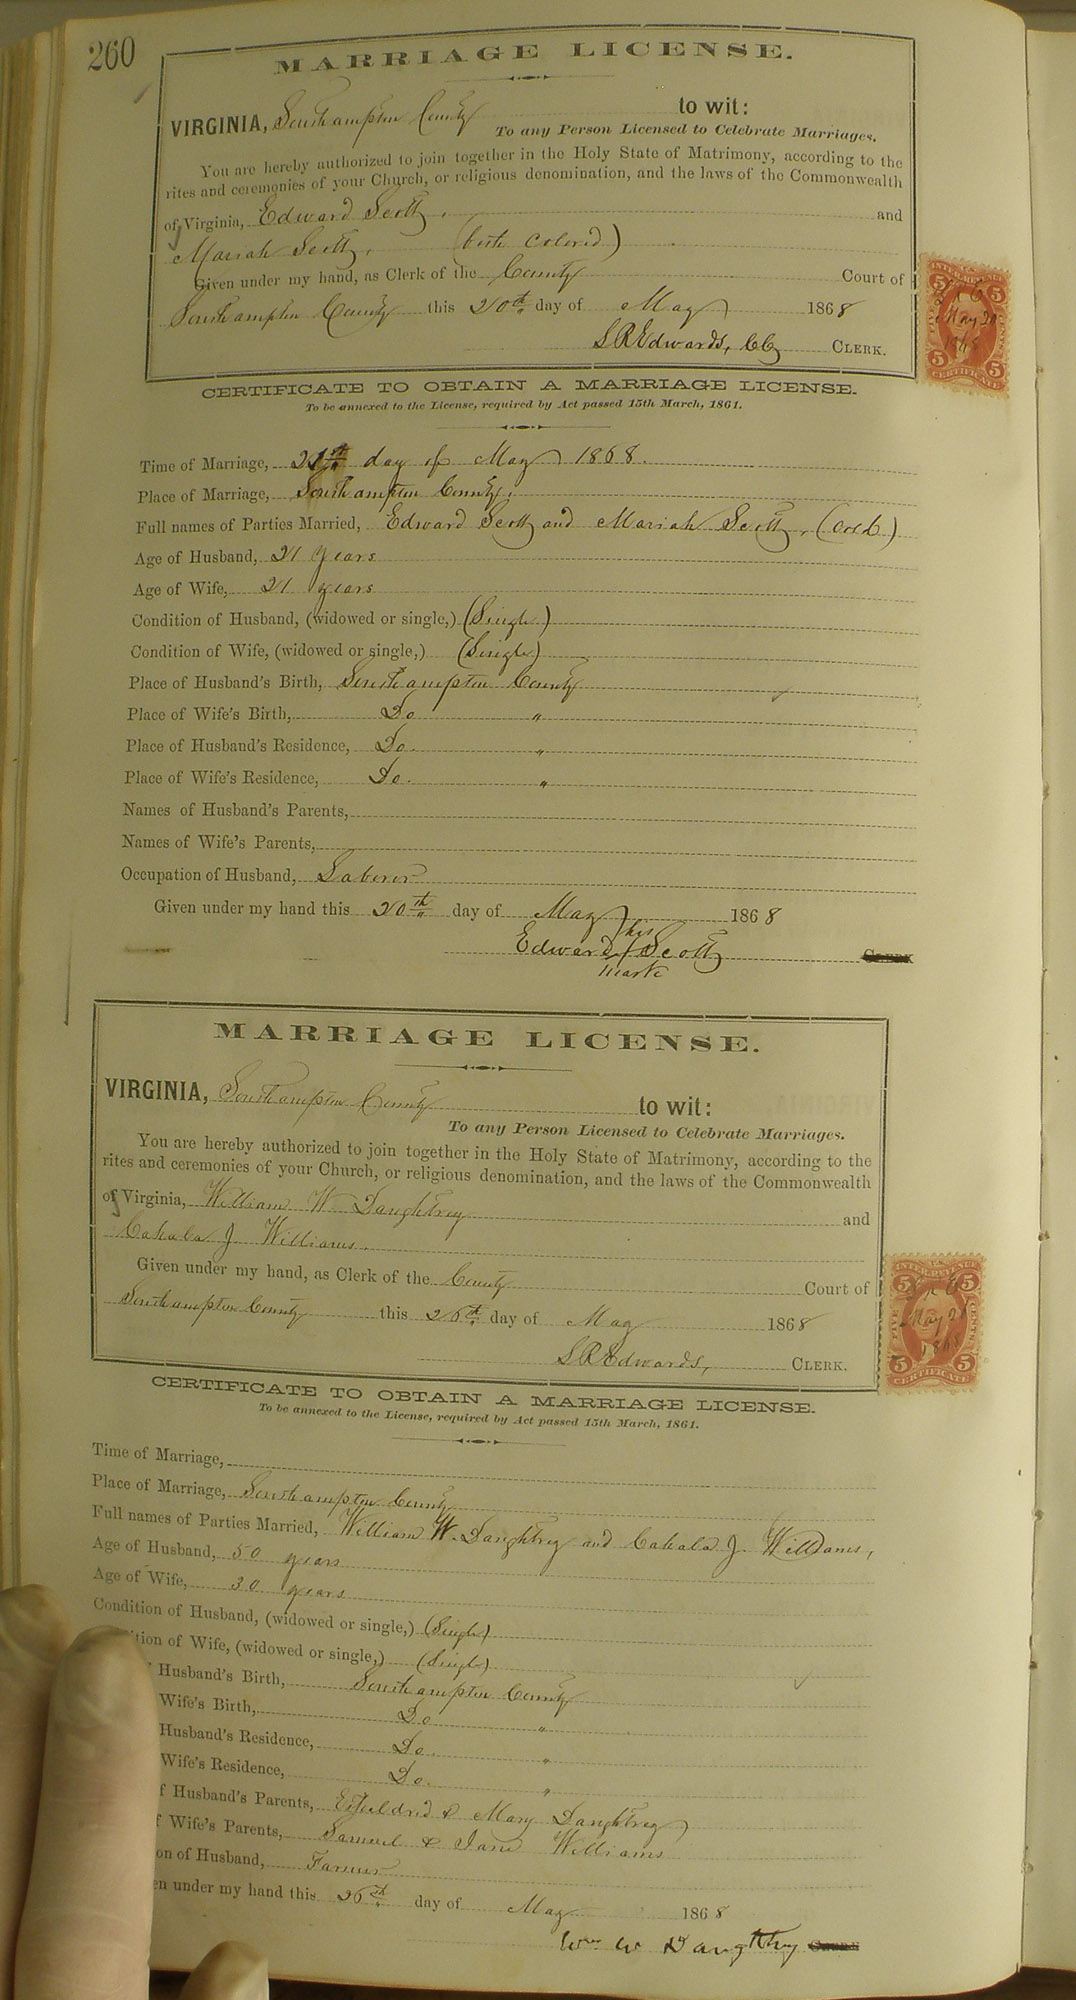 260
MARRIAGE LICENSE.
VIRGINIA, Southampton County to wit:
To any Person Licensed to Celebrate Marriages.
You are hereby authorized to join together in the Holy State of Matrimony, according to the
rites and ceremonies of your Church, or religious denomination, and the laws of the Commonwealth
of Virginia, Edward Scott, and
Mariah Scott, (both colored)
Given under my hand, as Clerk of the County Court of
Southampton County this 20th day of May 1868
S R Edwards, CC CLERK.
INTER. REVENUE
5 5
May 20
1868
FIVE CENTS
5 5
CERTIFICATE
CERTIFICATE TO OBTAIN A MARRIAGE LICENSE.
To be annexed to the License, required by Act passed 15th March, 1861.
Time of Marriage, 21st day of May 1868.
Place of Marriage, Southampton County.
Full names of Parties Married, Edward Scott and Mariah Scott, (Cold)
Age of Husband, 21 years
Age of Wife, 21 years
Condition of Husband, (widowed or single,) (Single)
Condition of Wife, (widowed or single,) (Single)
Place of Husband's Birth, Southampton County
Place of Wife's Birth, Do "
Place of Husband's Residence, Do. "
Place of Wife's Residence, Do. "
Names of Husband's Parents,
Names of Wife's Parents,
Occupation of Husband, Laborer
Given under my hand this 20th day of May 1868
his
Edward X Scott CLERK
mark
MARRIAGE LICENSE.
VIRGINIA, Southampton County to wit:
To any Person Licensed to Celebrate Marriages.
You are hereby authorized to join together in the Holy State of Matrimony, according to the
rites and ceremonies of your Church, or religious denomination, and the laws of the Commonwealth
of Virginia, William W Daughtrey and
Cahala J Williams.
Given under my hand, as Clerk of the County Court of
Southampton County this 26th day of May 1868
S R Edwards, CLERK.
INTER. REVENUE
5 5
May 26
1868
FIVE CENTS
5 5
CERTIFICATE
CERTIFICATE TO OBTAIN A MARRIAGE LICENSE.
To be annexed to the License, required by Act passed 15th March, 1861.
Time of Marriage,
Place of Marriage, Southampton County
Full names of Parties Married, William W. Daughtrey and Cahala J. Williams,
Age of Husband, 50 years
Age of Wife, 30 years
Condition of Husband, (widowed or single,) (Single)
ition of Wife, (widowed or single,) (Single)
Husband's Birth, Southampton County
Wife's Birth, Do "
Husband's Residence, Do "
Wife's Residence, Do. "
f Husband's Parents, & Mary Daughtrey
f Wife's Parents, Samuel & Jane Williams
on of Husband, Farmer
en under my hand this 26th day of May 1868
Wm W Daughtrey CLERK